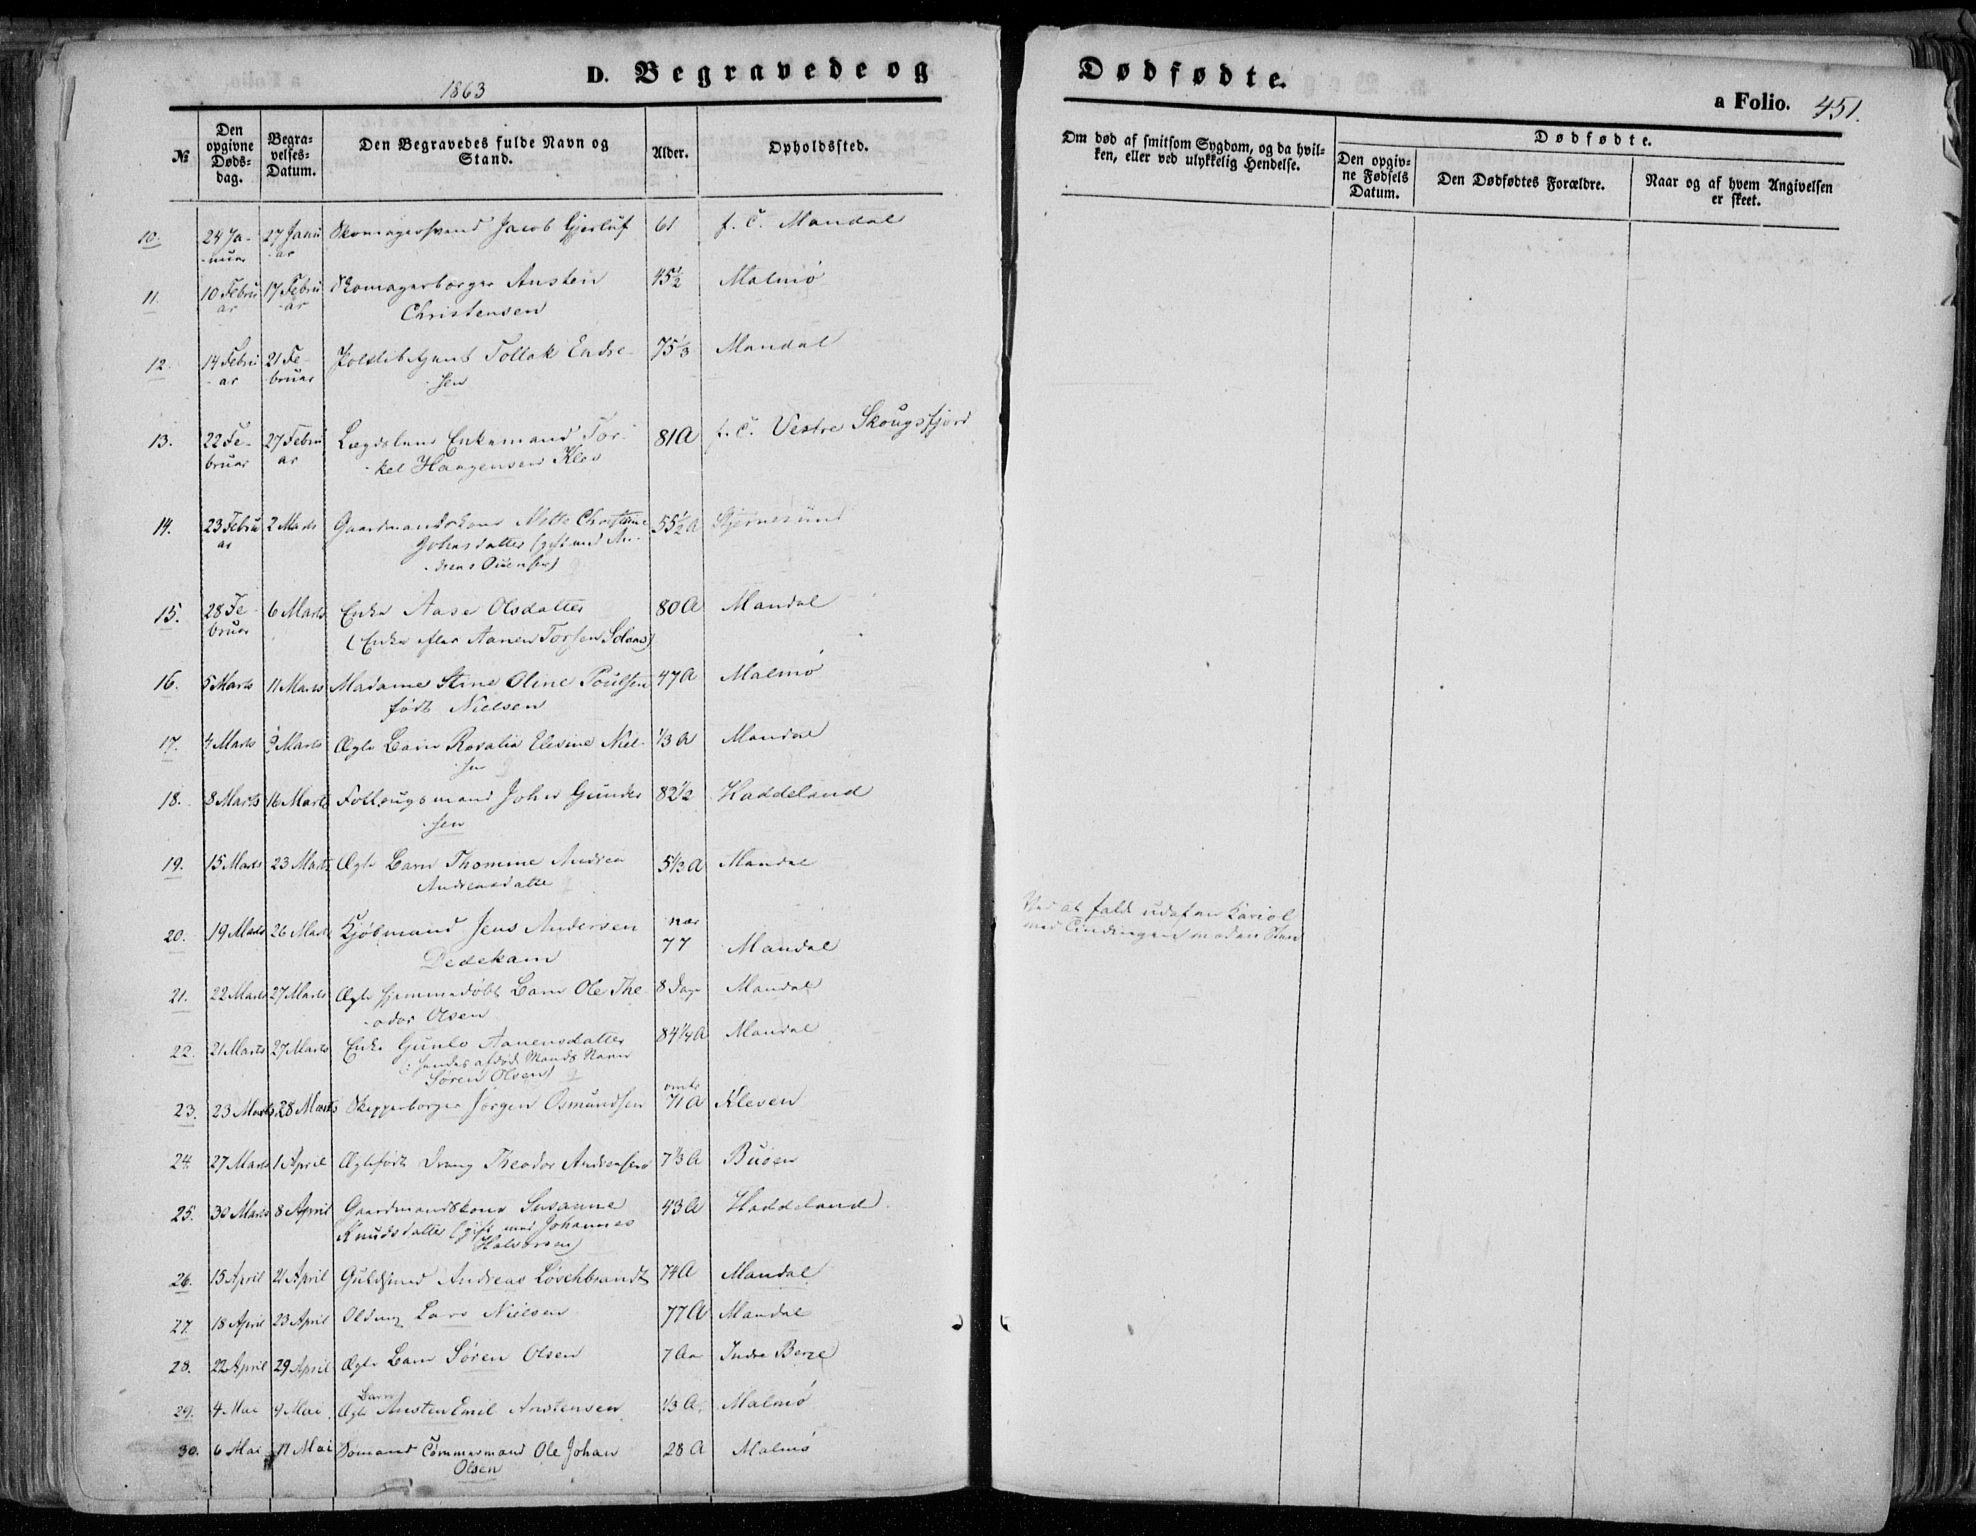 1863
D. Begravede og
Dødfødte.
a Folio. 451.
№
Den opgivne Døds-dag.
Begra-velses-Datum.
Den Begravedes fulde Navn og Stand.
Alder.
Opholdssted.
Om død af smitsom Sygdom, og da hvil-
ken, eller ved ulykkelig Hendelse.
Dødfødte.
Den opgiv-ne Fødsels Datum.
Den Dødfødtes Forældre.
Naar og af hvem Angivelsen er skeet.
10. 24 Ja- 27 Janu Skomagersvend Jacob Gjerluf 61 f. C. Mandal
-nuar -ar
11. 10 Febru 17 Febru Skomagerborger Ansten 45½ Malmø
ar -ar Christensen
12. 14 Febru 21 Fe- Tollak Endre- 75⅓ Mandal
-ar bruar -sen
13. 22 Fe- 27 Febru Lægdslem Enkemand Tor- 81 A f. C. Vestre Skougsfjord
bruar ar -kel Haagensen Klev
14. 23 Febru 2 Marts Gaardmandskone Mette Christine 55½ A Stjernesund
ar Johnsdatter (gift med An-
-dreas
15. 28 Fe- 6 Marts Enke Aase Olsdatter 80 A Mandal
bruar (Enke efter Aanen Torsen
16. 5 Marts 11 Marts Madame Stine Oline Poulsen 47 A Malmø
født Nielsen
17. 4 Marts 9 Marts Ægte Barn Rosalia Elevine Niel- ⅓ A Mandal
-sen
18. 8 Marts 16 Marts Follougsmand John Gunder 82½ Haddeland
-sen
19. 15 Marts 23 Marts Ægte Barn Thomine Andrea 5⅓ A Mandal
Andreasdatter
20. 19 Marts 26 Marts Kjøbmand Jens Andersen nær 77 Mandal Ved at falde ud af en Kariol
Dedekam
21. 22 Marts 27 Marts Ægte hjemmedøbt Barn Ole The 8 Dage Mandal
-odor Olsen
22. 21 Marts 27 Marts Enke Gunlo Aanensdatter 84¼ A Mandal
(: hendes afdøde Mands Navn
Søren Olsen)
23. 23 Marts 28 Marts Skipperborger Jørgen Osmundsen omtr 71 A Kleven
24. 27 Marts 1 April Ægtefødt Dreng Theodor Andreassen 7⅓ A Buøen
25. 30 Marts 8 April Gaardmandskone Susanne 43 A Haddeland
Knudsdatter (gift med Johannes
Halvorsen)
26. 15 April 21 April Guldsmed Andreas Løschbrandt 74 A Mandal
27. 18 April 23 April Olding Lars Nielsen 77 A Mandal
28. 22 April 29 April Ægte Barn Søren Olsen 7 Aar Indre Berge
29. 4 Mai 9 Mai Ægte Barn Ansten Emil Anstensen ⅓ A. Malmø
30. 6 Mai 11 Mai Sømand Tømmermand Ole Johan 28 A Malmø
Olsen